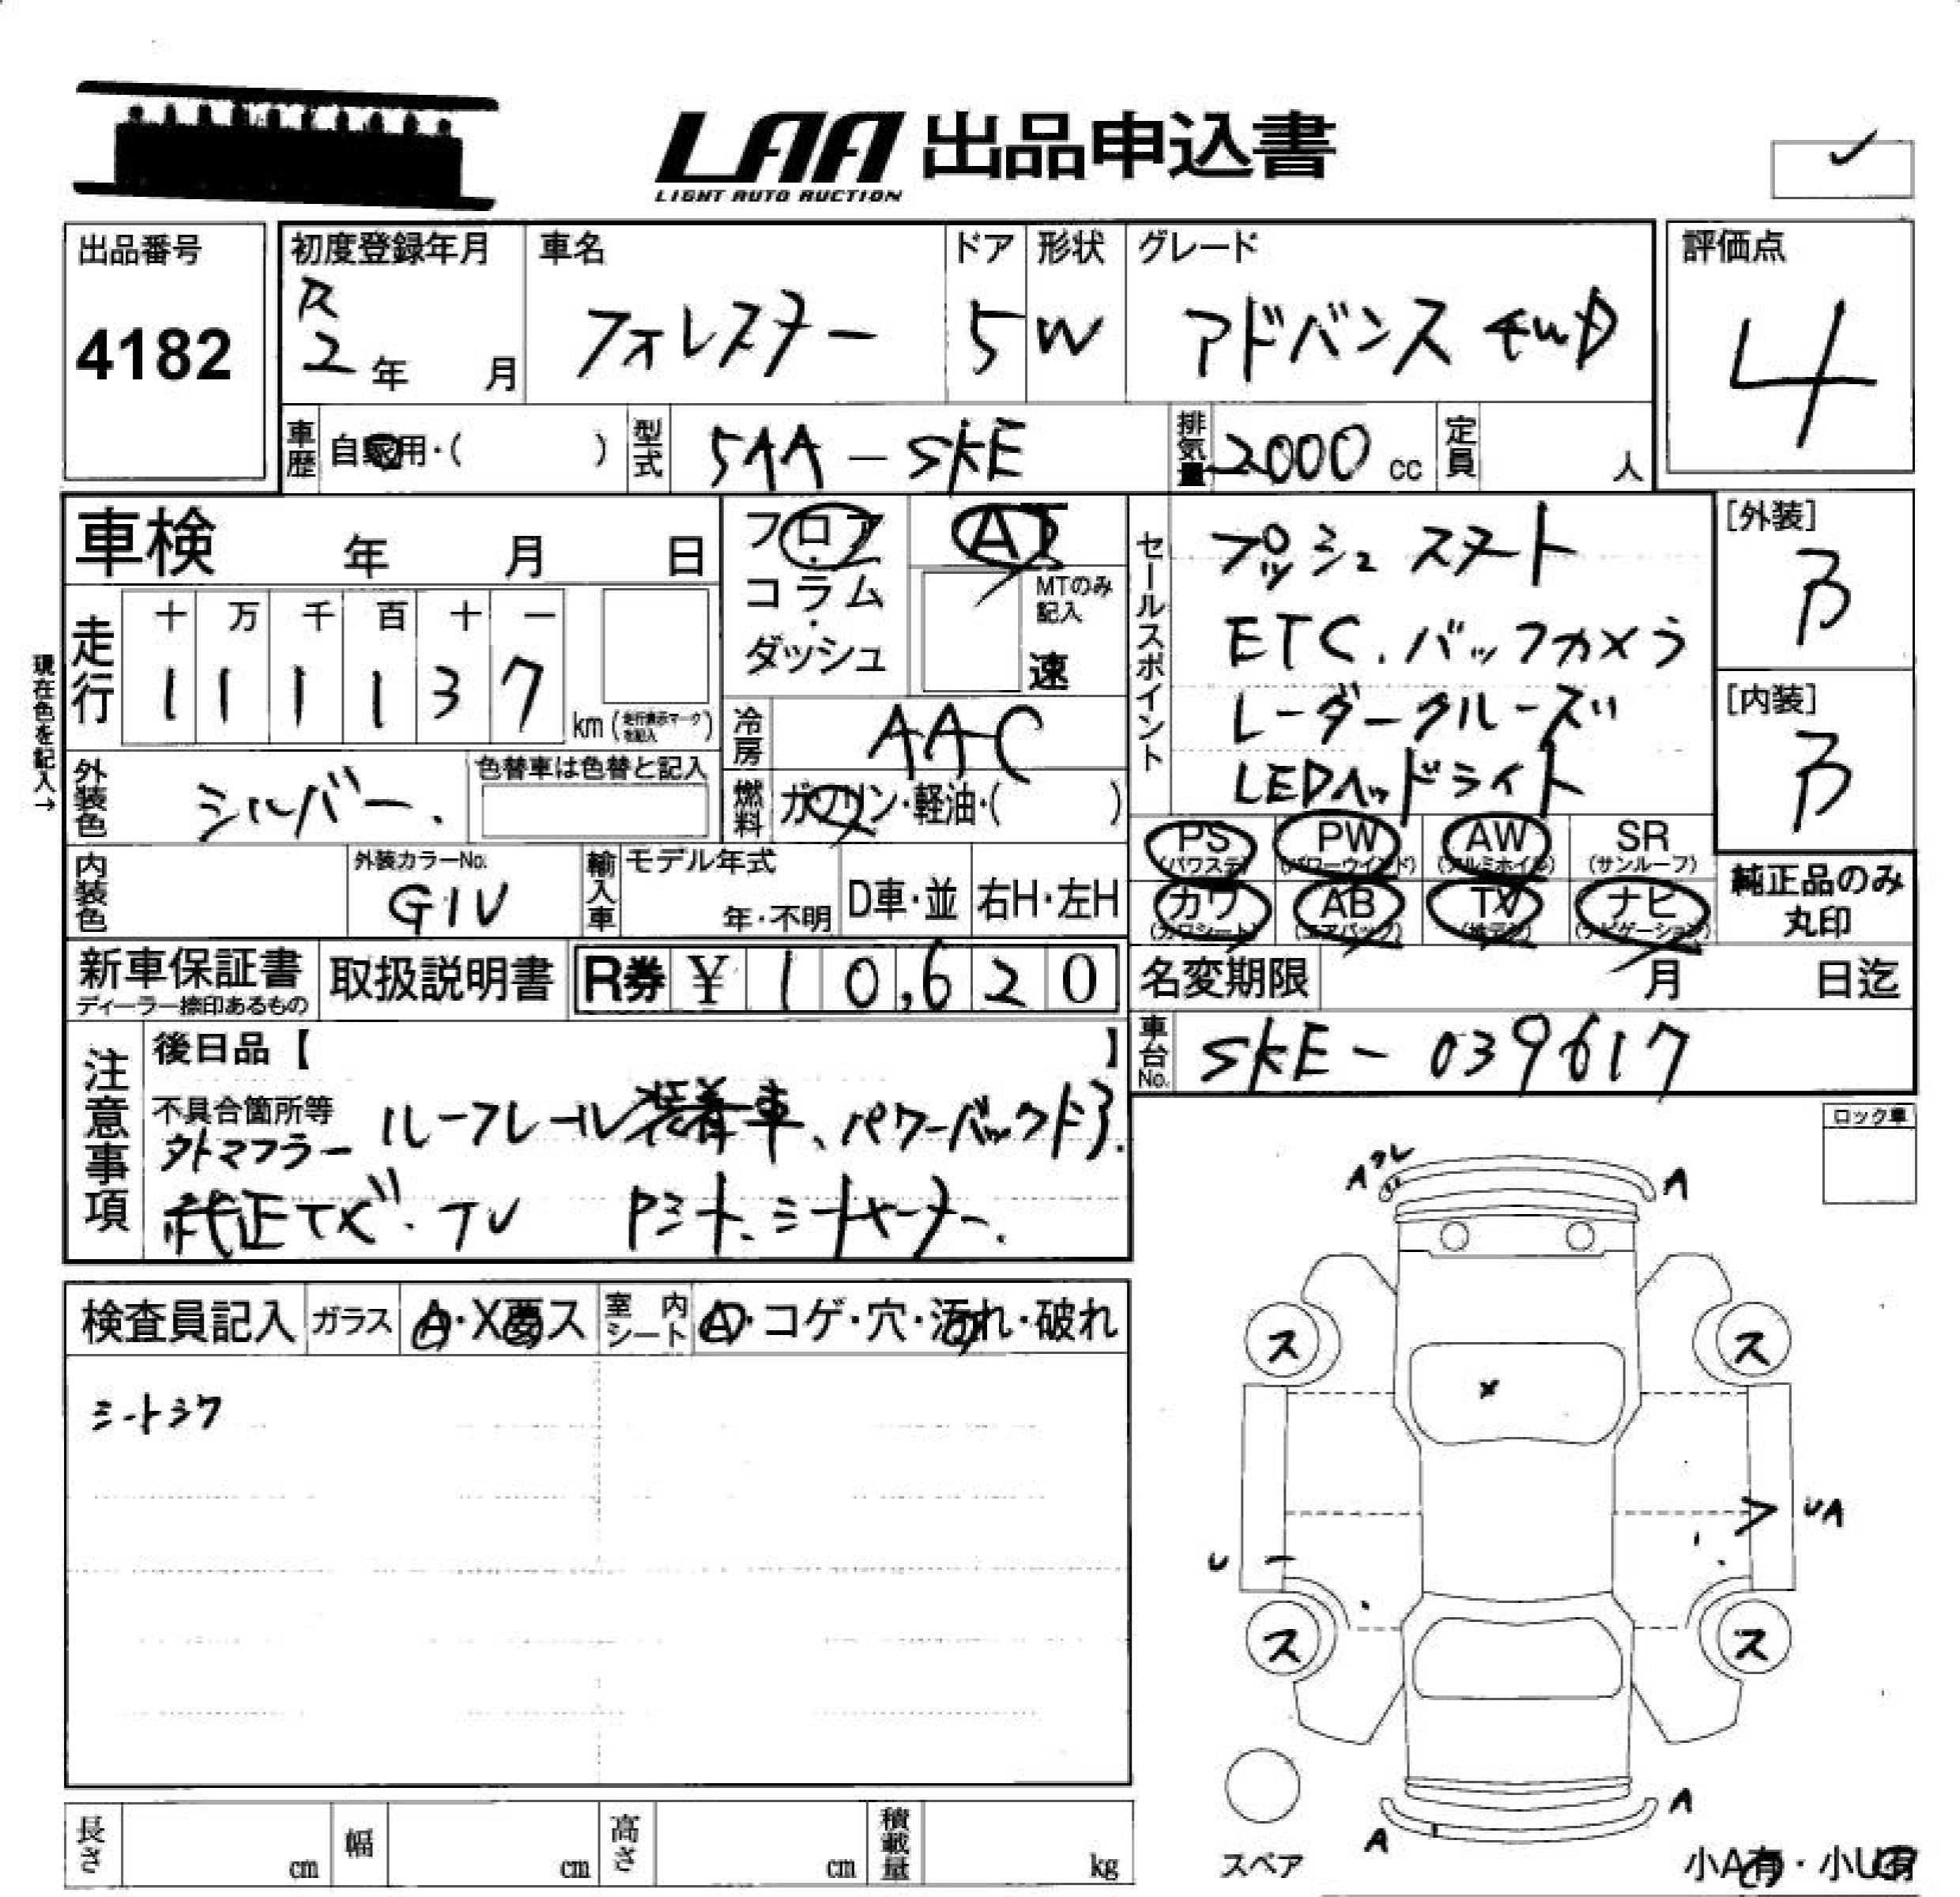 LAA 出品申込書
LIGHT AUTO AUCTION
出品番号
4182
初度登録年月
R
2 年 月
車名
フォレスター
ドア
5
形状
W
グレード
アドバンス 4WD
評価点
4
車歴 自家用・( )
型式 5AA-SKE
排気量 2000 cc
定員 人
車検 年 月 日
フロア・コラム・ダッシュ
AT
MTのみ記入
速
セールスポイント
プッシュスタート
ETC.バックカメラ
レーダークルーズ
LEDヘッドライト
[外装]
B
[内装]
B
現在色を記入→
走行
十 万 千 百 十 一
1 1 1 1 3 7
km (走行表示マークを記入)
冷房 AAC
外装色 シルバー.
色替車は色替と記入
燃料 ガソリン・軽油・( )
PS (パワステ)
PW (パワーウインド)
AW (アルミホイル)
SR (サンルーフ)
カワ (カワシート)
AB (エアバック)
TV (地デジ)
ナビ (ナビゲーション)
純正品のみ丸印
内装色
外装カラーNo.
G1U
輸入車
モデル年式
年・不明
D車・並
右H・左H
新車保証書
ディーラー捺印あるもの
取扱説明書
R券 ¥ 10,620
名変期限 月 日迄
車台No. SKE-039617
注意事項
後日品【 】
不具合箇所等
ルーフレール装着車、パワーバックドア.
外マフラー
純正ナビ・TV Pシート.シートヒーター.
ロック車
検査員記入
ガラス A・X要ス
室内シート A・コゲ・穴・汚れ・破れ
シートシワ
A クレ
A
ス
ス
x
UA
U
ス
ス
A
A
スペア
小A有・小U有
長さ cm
幅 cm
高さ cm
積載量 kg